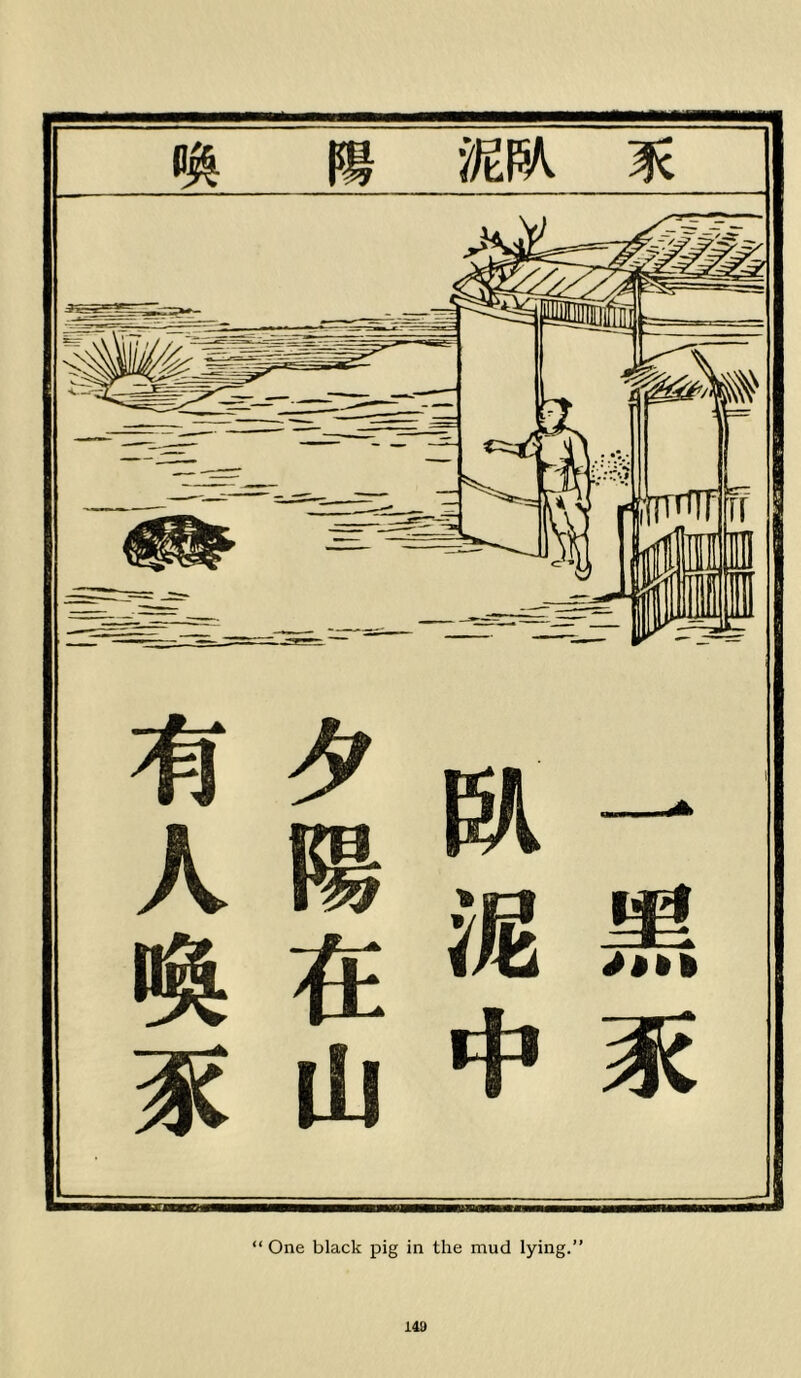 豕 臥泥 陽 喚
一黑豕
臥泥中
夕陽在山
有人喚豕
“ One black pig in the mud lying.”
149